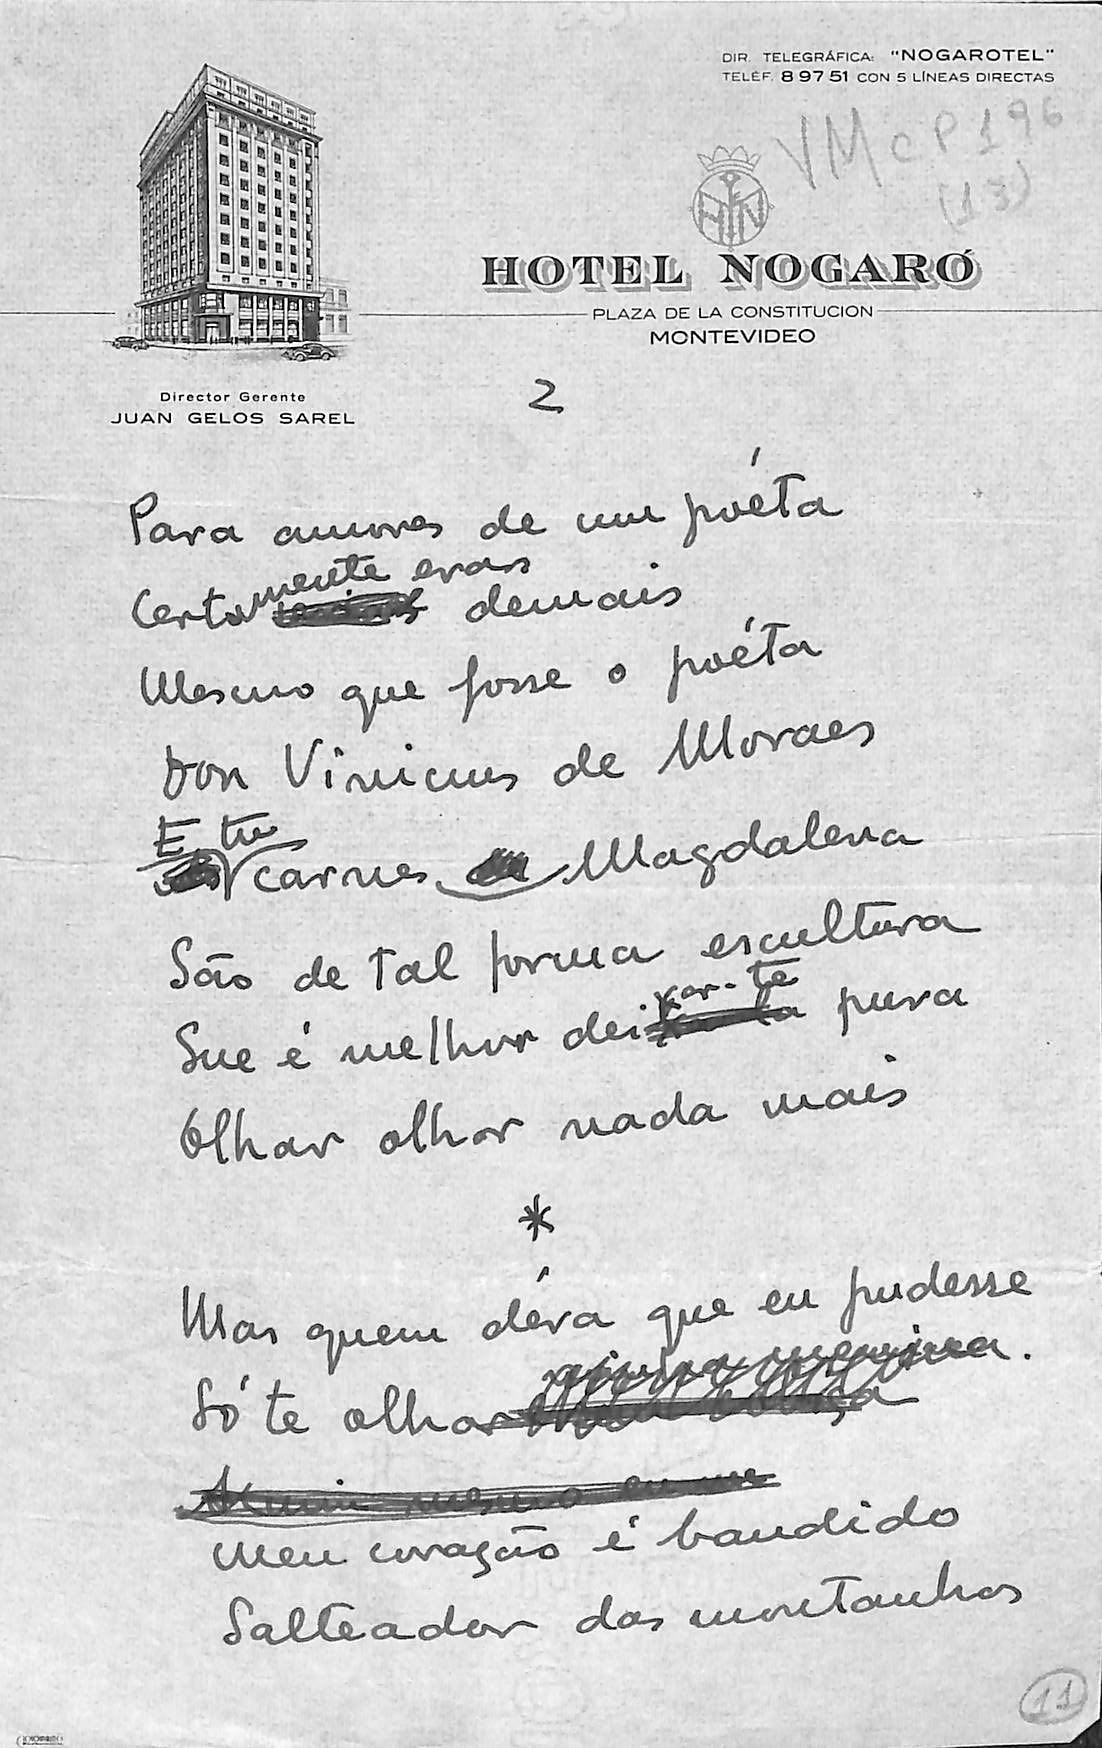 DIR. TELEGRÁFICA: "NOGAROTEL"
TELÉF. 8 97 51 CON 5 LÍNEAS DIRECTAS
VMcP196
(13)
HOTEL NOGARÓ
PLAZA DE LA CONSTITUCION
MONTEVIDEO
Director Gerente
JUAN GELOS SAREL
2
Para amores de um poéta
mente eras
Certa demais
Mesmo que fosse o poéta
Don Vinicius de Moraes
E tu
carnes Magdalena
São de tal forma escultura
xar-te
Que é melhor dei pura
Olhar olhar nada mais
*
Mas quem déra que eu pudesse
menina.
Só te olhar
meu coração é bandido
Salteador das montanhas
11